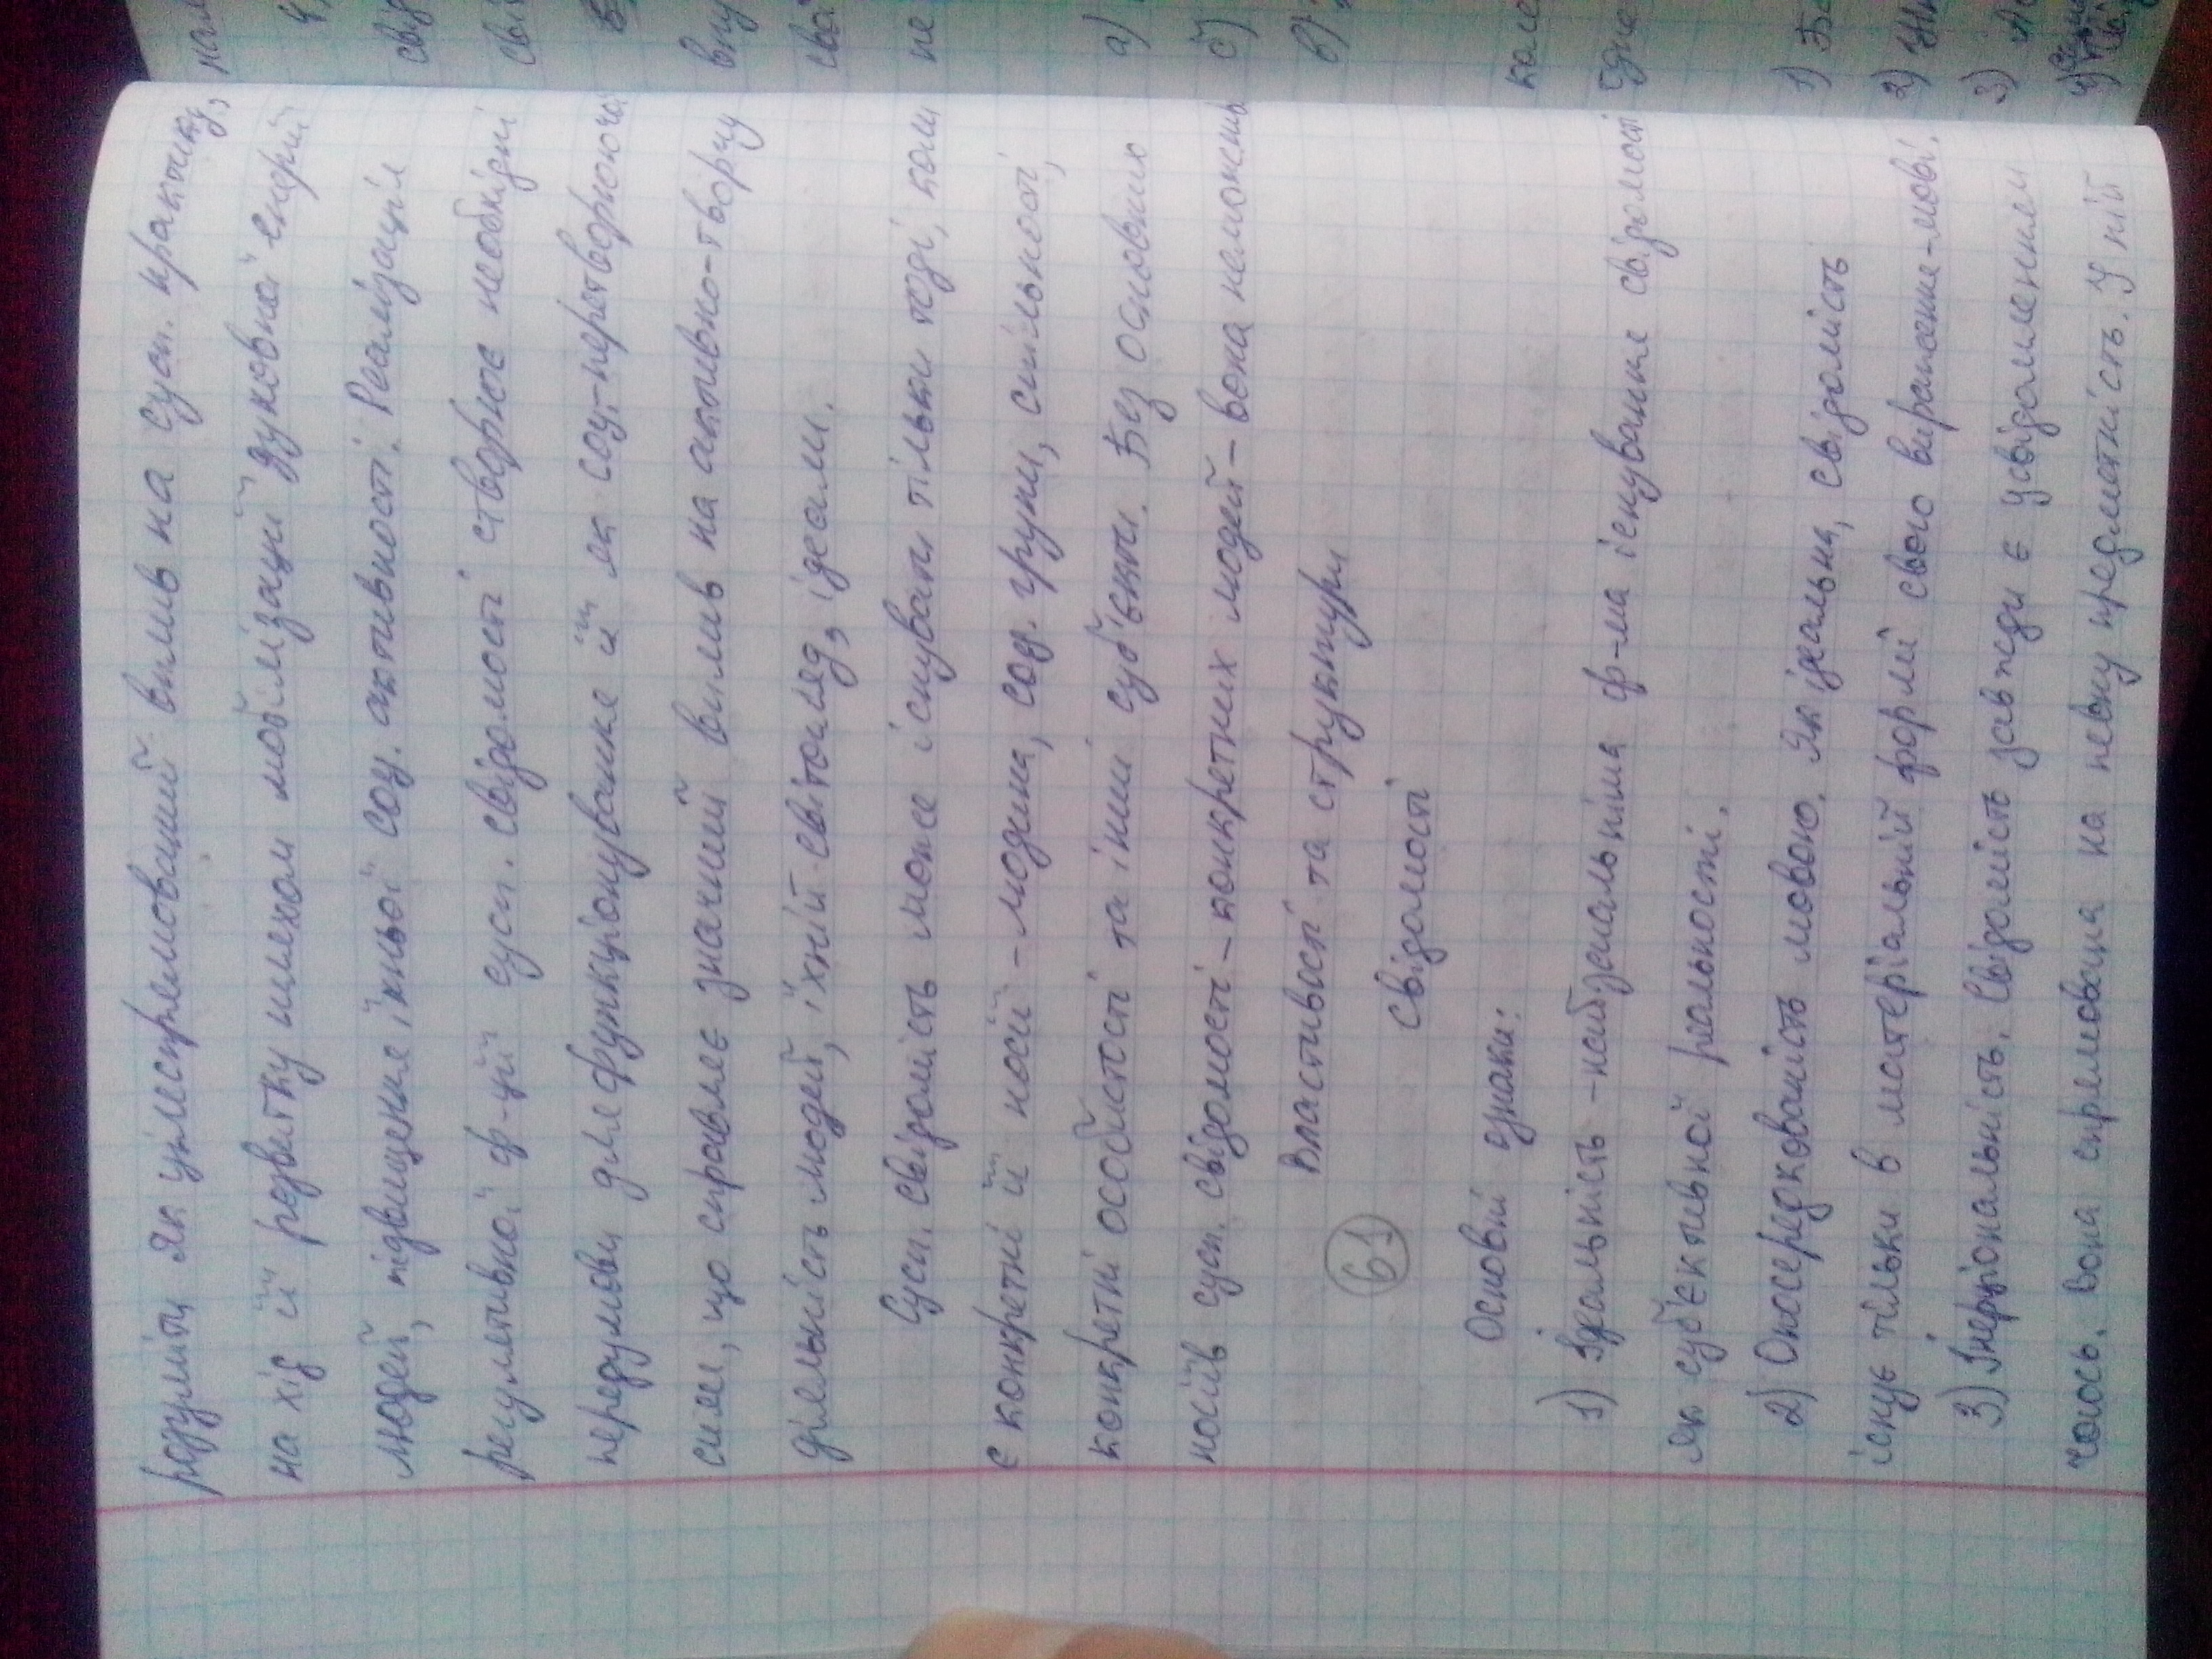 розуміти як цілеспрямований вплив на сусп. практику,
на хід її розвитку шляхом мобілізації духовної енергії
людей, підвищення їхньої соц. активності. Реалізація
регулятивної ф-ції сусп. свідомості створює необхідні
передумови для функціонування її як соц-перетворюючої
сили, що справляє значний вплив на активно-творчу
діяльність людей, їхній світогляд, ідеали.
Сусп. свідомість може існувати тільки тоді, коли
є конкретні її носії - людина, соц. групи, спільності,
конкретні особистості та інші суб'єкти. Без основних
носіїв сусп. свідомості - конкретних людей - вона неможлива
Властивості та структури
61
свідомості
Основні ознаки:
1) Ідеальність - найзагальніша ф-ма існування свідомості
як суб'єктивної реальності.
2) Опосередкованість мовою. Як ідеальна, свідомість
існує тільки в матеріальній формі свого вираження - мові.
3) Інерціональність. Свідомість завжди є усвідомленням
чогось. Вона спрямована на певну предметність. У ній
а)
б)
в)
1)
2)
3)
4)